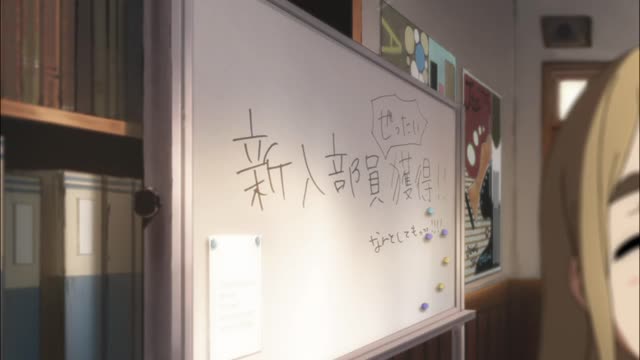 ぜったい
新入部員獲得!!
なんとしてもっ!!!!